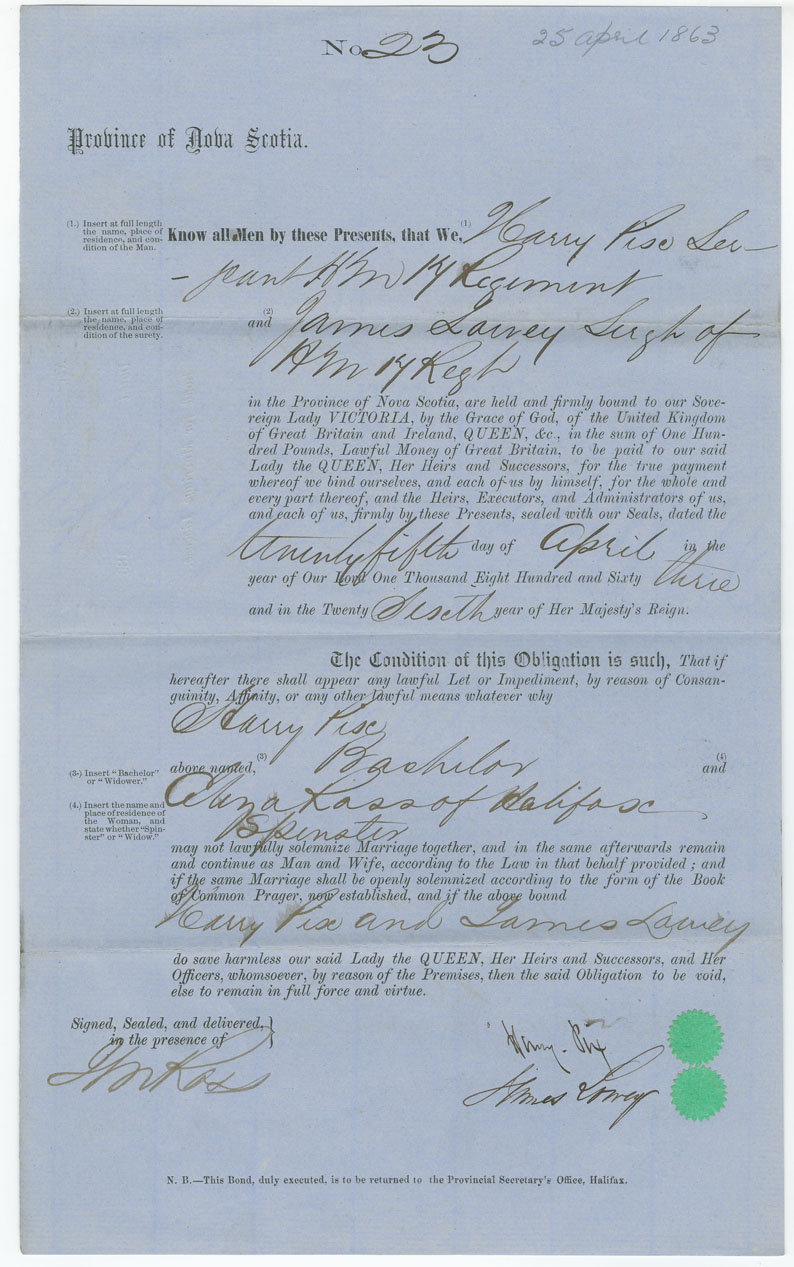 No. 23
25 april 1863
Province of Nova Scotia.
(1.) Insert at full length
the name, place of
residence, and con-
dition of the Man.
Know all Men by these Presents, that We, (1) Harry Pix Ser-
- geant H M 17 Regiment
(2.) Insert at full length
the name, place of
residence, and con-
dition of the surety.
(2)
and James Lowey Sergt of
H M 17 Regt
in the Province of Nova Scotia, are held and firmly bound to our Sove-
reign Lady VICTORIA, by the Grace of God, of the United Kingdom
of Great Britain and Ireland, QUEEN, &c., in the sum of One Hun-
dred Pounds, Lawful Money of Great Britain, to be paid to our said
Lady the QUEEN, Her Heirs and Successors, for the true payment
whereof we bind ourselves, and each of us by himself, for the whole and
every part thereof, and the Heirs, Executors, and Administrators of us,
and each of us, firmly by these Presents, sealed with our Seals, dated the
twenty fifth day of April in the
year of Our Lord One Thousand Eight Hundred and Sixty three
and in the Twenty Sixth year of Her Majesty's Reign.
The Condition of this Obligation is such, That if
hereafter there shall appear any lawful Let or Impediment, by reason of Consan-
guinity, Affinity, or any other lawful means whatever why
Harry Pix
(3-) Insert "Bachelor"
or "Widower."
above named, (3) Bachelor (4) and
(4.) Insert the name and
place of residence of
the Woman, and
state whether "Spin-
ster" or "Widow."
Eliza Ross of Halifax
Spinster
may not lawfully solemnize Marriage together, and in the same afterwards remain
and continue as Man and Wife, according to the Law in that behalf provided; and
if the same Marriage shall be openly solemnized according to the form of the Book
of Common Prager, now established, and if the above bound
Harry Pix and James Lowey
do save harmless our said Lady the QUEEN, Her Heirs and Successors, and Her
Officers, whomsoever, by reason of the Premises, then the said Obligation to be void,
else to remain in full force and virtue.
Signed, Sealed, and delivered,
in the presence of }
Henry Pix
James Lowey
N. B.—This Bond, duly executed, is to be returned to the Provincial Secretary's Office, Halifax.